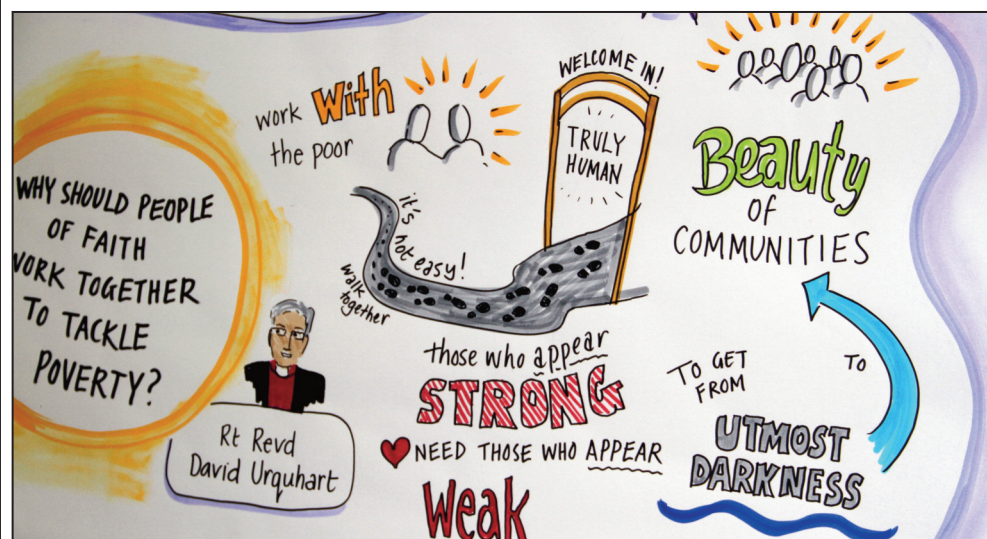 WHY SHOULD PEOPLE
OF FAITH
WORK TOGETHER
TO TACKLE
POVERTY?
Rt Revd
David Urquhart
work With
the poor
WELCOME IN!
TRULY
HUMAN
it's not easy!
walk
together
those who appear
STRONG
NEED THOSE WHO APPEAR
Weak
Beauty
OF
COMMUNITIES
TO GET
FROM
TO
UTMOST
DARKNESS